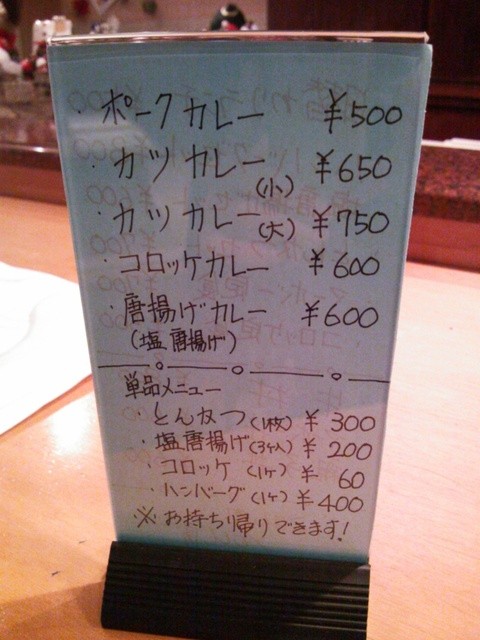 ・ポークカレー ¥500
・カツカレー(小) ¥650
・カツカレー(大) ¥750
・コロッケカレー ¥600
・唐揚げカレー ¥600
(塩唐揚げ)
単品メニュー
・とんかつ(1枚) ¥300
・塩唐揚げ(3ヶ入) ¥200
・コロッケ(1ヶ) ¥60
・ハンバーグ(1ヶ) ¥400
※お持ち帰りできます!